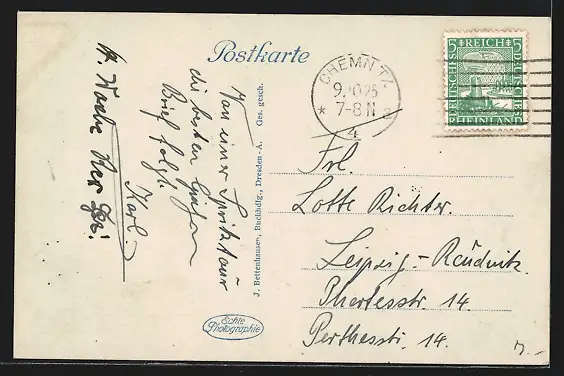 Postkarte
Von einer Spritztour
die besten Grüßen
Brief folgt.
Karl
J. Bettenhausen, Buchhdlg., Dresden-A. Ges. gesch.
Echte
Photographie
CHEMNITZ
9.10.25
7-8 N
* 4 a
5 REICH 5
DEUTSCHES
DEUTSCHES
RHEINLAND
Frl.
Lotte Richter.
Leipzig-Reudnitz
Phertesstr. 14
Perthesstr. 14.